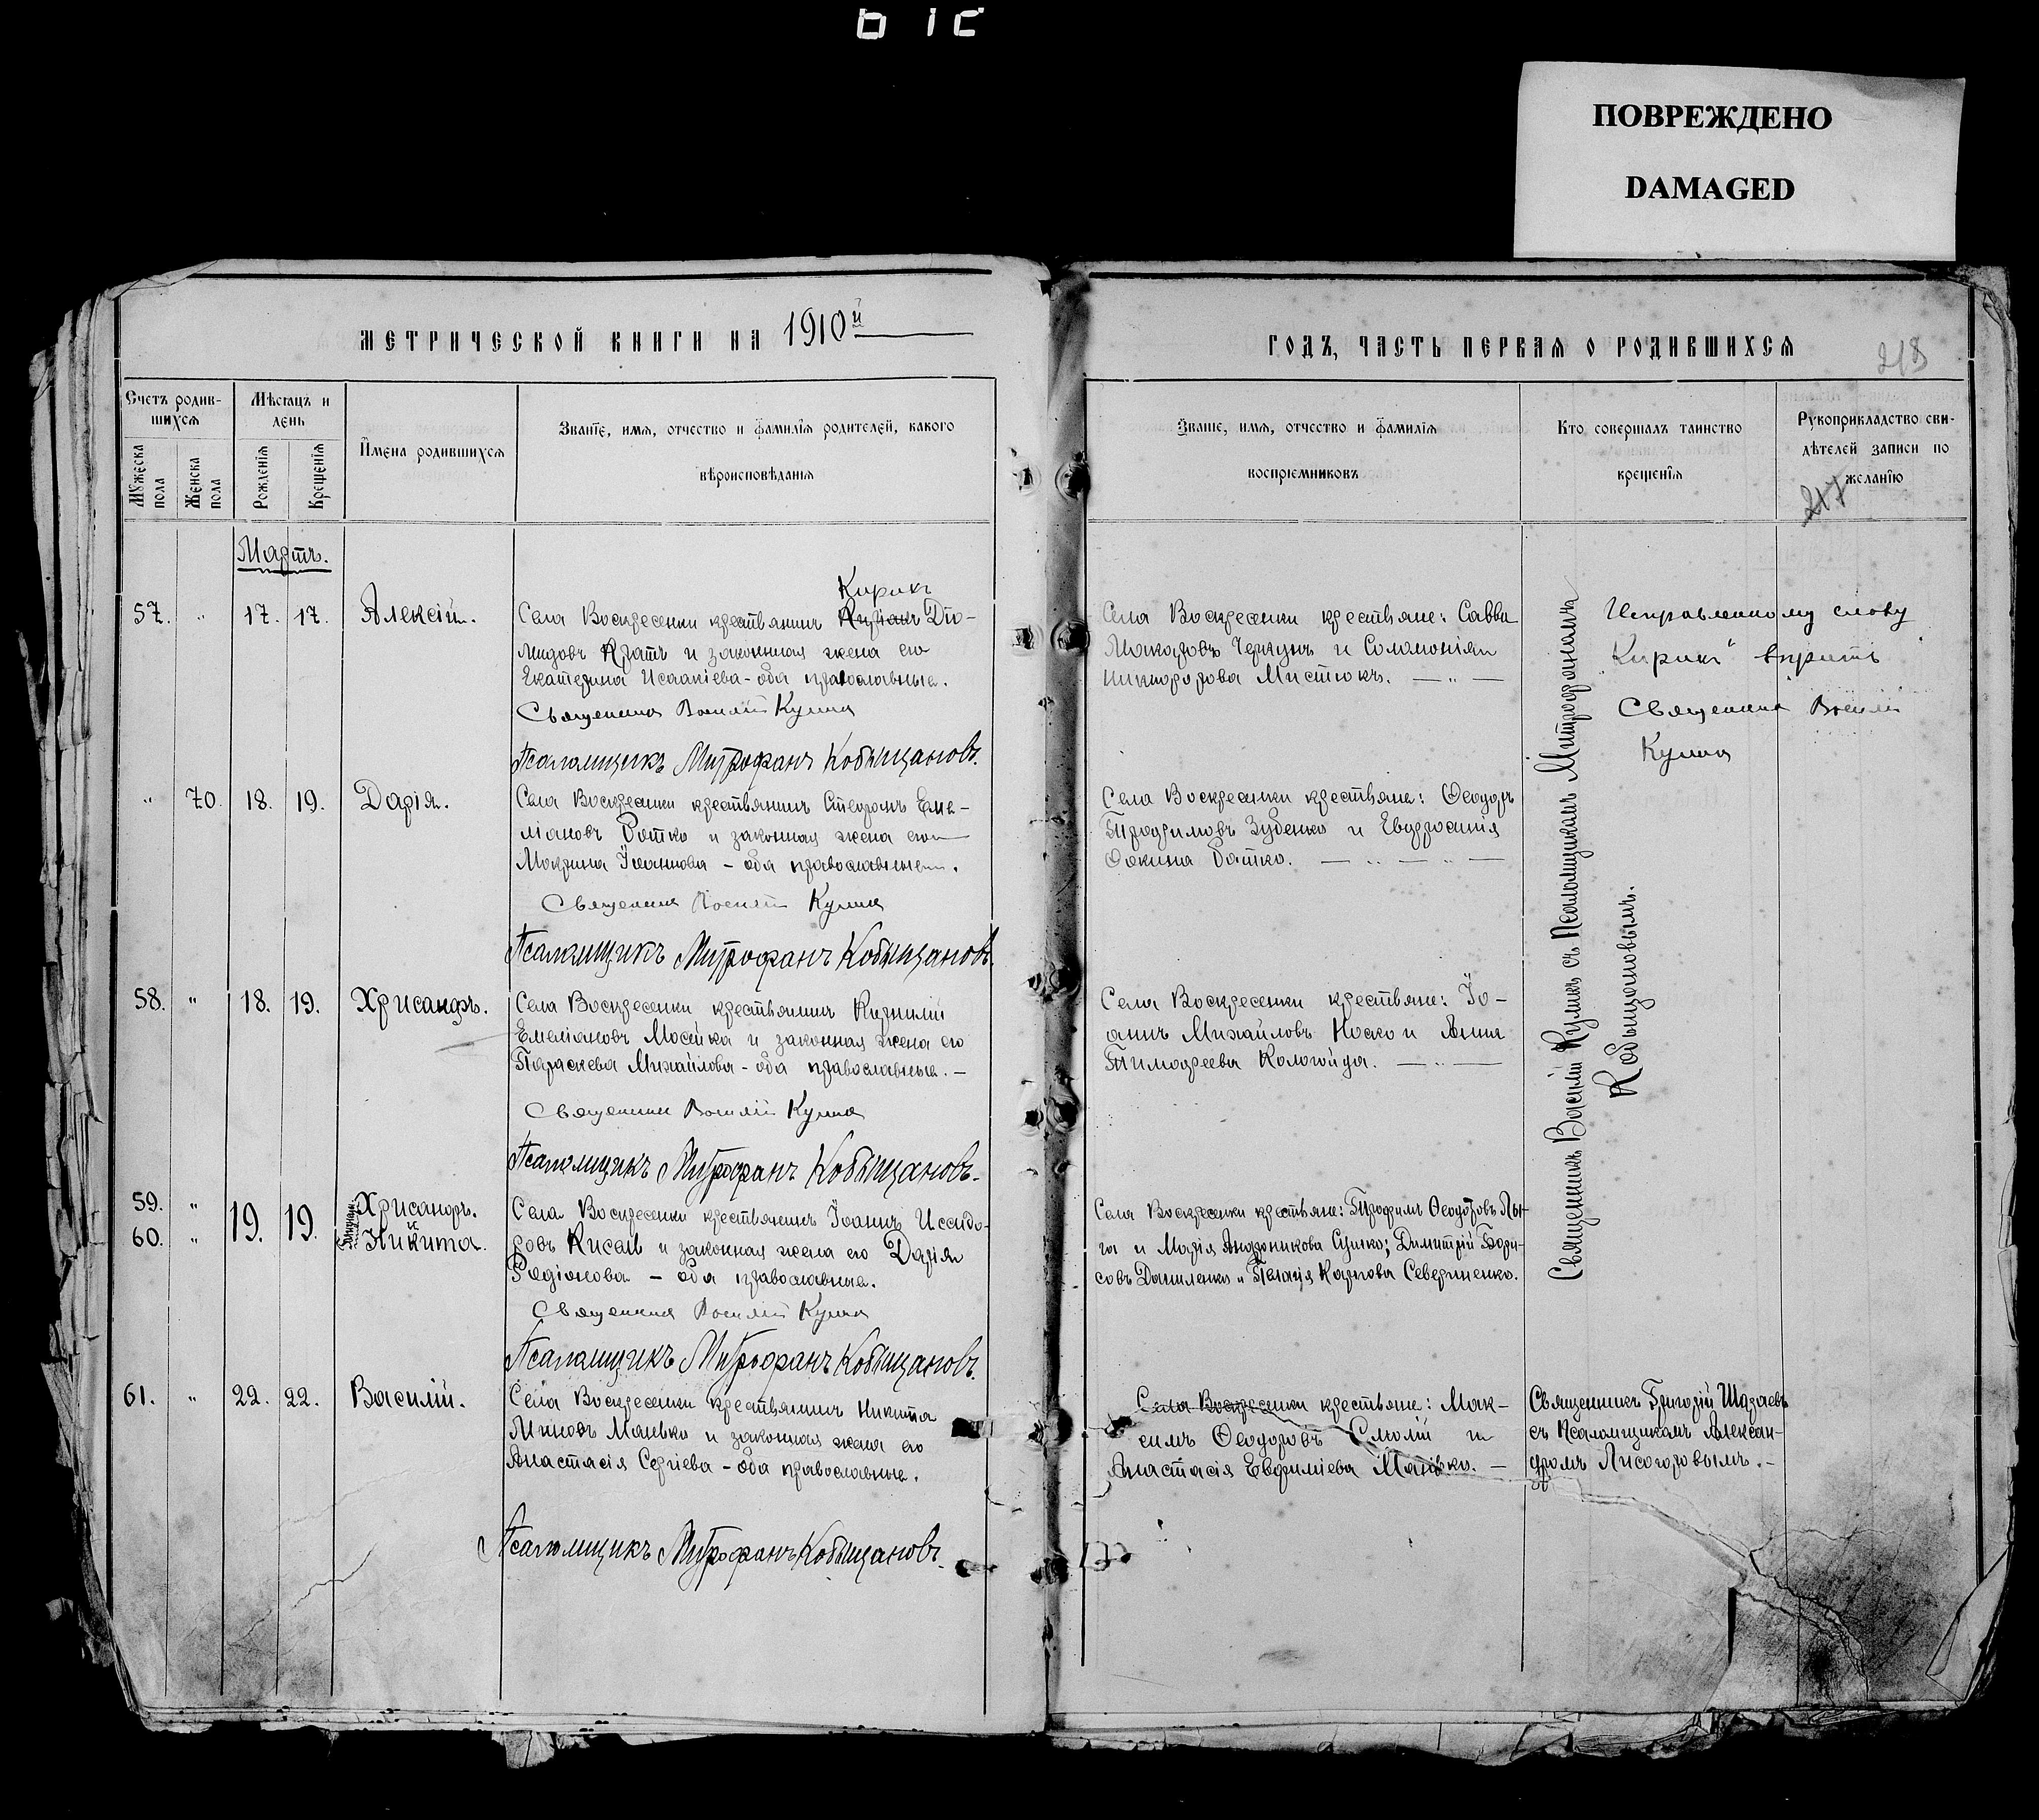 ПОВРЕЖДЕНО
DAMAGED
МЕТРИЧЕСКОЙ КНИГИ НА 1910й
Счетъ родившихся
Мѣсяцъ и день
Имена родившихся
Званіе, имя, отчество и фамилія родителей, какого
вѣроисповѣданія
Мужеска пола
Женска пола
Рожденія
Крещенія
Мартъ.
Кирикъ
57. " 17. 17. Алексій. Села Воскресенки крестьянинъ Діо-
мидовъ и законная жена его
Екатерина Исаакіева - оба православные.
Священникъ Василій Куликъ
Псаломщикъ Митрофанъ Кобыщановъ.
" 70. 18. 19. Дарія. Села Воскресенки крестьянинъ Стефанъ Еме-
ліановъ Батко и законная жена его
Макрина Іоаннова - оба православные.
Священникъ Василій Куликъ
Псаломщикъ Митрофанъ Кобыщановъ.
58. " 18. 19. Хрисанфъ. Села Воскресенки крестьянинъ Корнилій
Емеліановъ Мосейка и законная жена его
Параскева Михайлова - оба православные. -
Священникъ Василій Куликъ
Псаломщикъ Митрофанъ Кобыщановъ.
59. " 19. 19. Хрисанфъ. Села Воскресенки крестьянинъ Іоаннъ Исидо-
60. " Близнецы Никита. ровъ Кисель и законная жена его Дарія
Родіонова - оба православные.
Священникъ Василій Куликъ
Псаломщикъ Митрофанъ Кобыщановъ.
61. " 22. 22. Василій. Села Воскресенки крестьянинъ Никита
Миновъ Манько и законная жена его
Анастасія Сергіева - оба православные.
Псаломщикъ Митрофанъ Кобыщановъ.
ГОДЪ, ЧАСТЬ ПЕРВАЯ О РОДИВШИХСЯ
218
Званіе, имя, отчество и фамилія
воспріемниковъ
Кто совершалъ таинство
крещенія
Рукоприкладство сви-
дѣтелей записи по
желанію
217
Села Воскресенки крестьяне: Савва
Макаровъ и Соломонія
Никифорова Мистюкъ. — " —
Исправленному слову
"Кирикъ" вѣрить
Священникъ Василій
Куликъ
Села Воскресенки крестьяне: Ѳеодоръ
Трофимовъ Зубенко и Евфросинія
Ѳокина Батко. — " — " —
Села Воскресенки крестьяне: Іо-
аннъ Михайловъ Носко и Анна
Тимофеева Кологойда. — " —
Села Воскресенки крестьяне: Трофимъ Ѳеодоровъ Лы-
га и Марія Андроникова Сушко; Димитрій Бори-
совъ Даниленко и Пелагія Карпова Севериненко.
Священникъ Василій Куликъ съ Псаломщикомъ Митрофаномъ
Кобыщановымъ.
Села Воскресенки крестьяне: Мак-
симъ Ѳеодоровъ Смолій и
Анастасія Евфиміева Манько. —
Священникъ Григорій
съ Псаломщикомъ Алексан-
дромъ Лисогоровымъ. -